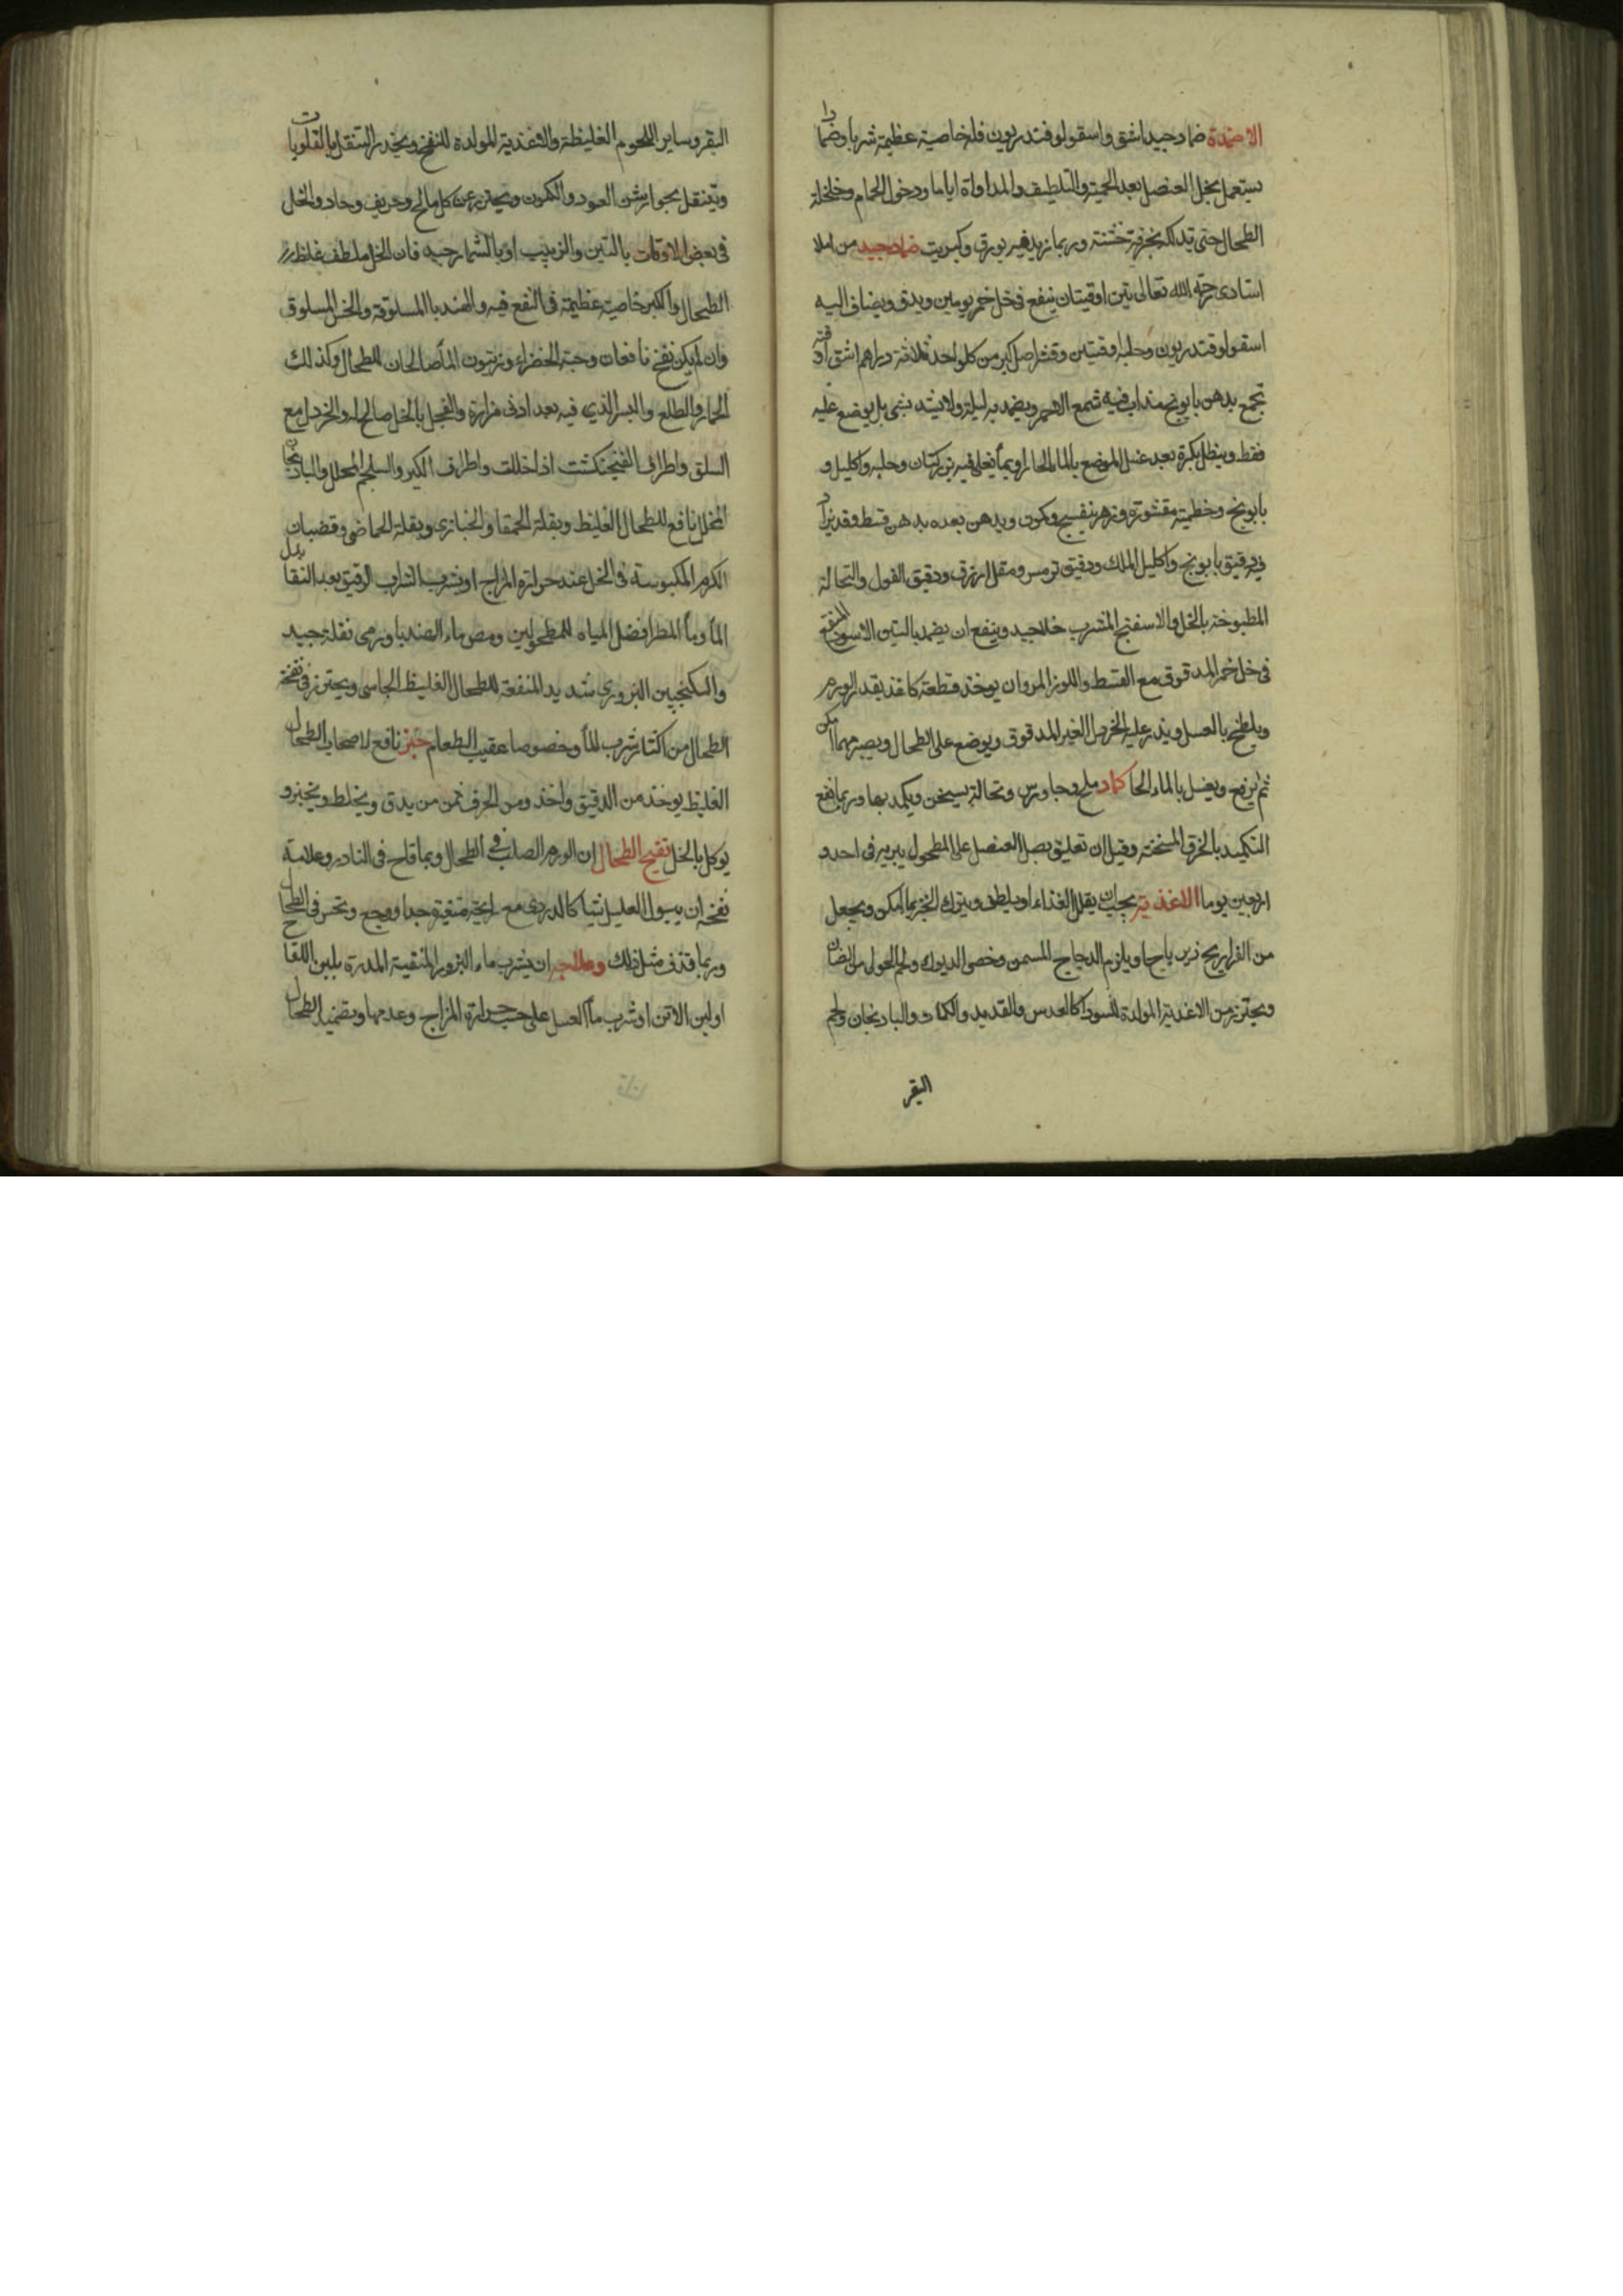 الاضمدة ضماد جيد اشق واسقولوفندريون فله خاصية عظيمة شربا وضمادا
يستعمل بخل العنصل بعد الحمية والتلطيف والمداواة اياما ودخول الحمام وخلخلة
الطحال حتى تدلكه بخرقة خشنة وربما زيد فيه بورق وكبريت ضماد جيد من املا
استادى رحمه الله تعالى تين اوقيتان ينقع فى خل خمر يومين ويدق ويضاف اليه
اسقولوفندريون وحلبة اوقيتين وقشر اصل كبر من كل واحد ثلاثة دراهم اشق اوقية
تجمع بدهن بابونج مذاب فيه شمع الاحمر ويضمد به ليلة ولا يشد بشى بل يوضع عليه
فقط وينطل بكرة بعد غسل الموضع بالماء الحار او بما يغلى فيه بزر كتان وحلبة واكليل و
بابونج وخطمية مقشورة وزهر بنفسج وكمون ويدهن بعده بدهن قسط وقد يزاد
فيه دقيق بابونج واكليل الملك ودقيق ترمس ومقل ازرق ودقيق الفول والنخالة
المطبوخة بالخل والاسفنج المتشرب خلا جيد وينفع ان يضمد بالتين الاسود المنقع
فى خل خمر المدقوق مع القسط واللوز المر وان يوخذ قطعة كاغذ بقدر الورم
ويلطخ بالعسل ويذر عليه الخردل الغير المدقوق ويوضع على الطحال ويصبر مهما امكن
ثم يرفع ويغسل بالماء الحار كماد ملح وجاورس ونخالة يسخن ويكمد بها وربما نفع
التكميد بالخرق المسخنة وقيل ان تعليق بصل العنصل على المطحول يبريه فى احد و
اربعين يوما الاغذية يجب ان يقلل الغذاء او يلطف ويترك الخبز ما امكن ويجعل
من الفراريج زيرباجا ويلزم الدجاج المسمن وخصى الديوك ولحم الحولى من الضان
ويحترز من الاغذية المولدة للسودا كالعدس والقديد والكمات والبادنجان ولحم
البقر
البقر وساير اللحوم الغليظة والاغذية المولدة للنفخ ويحذر التنقل بالقلوبات
ويتنقل بجوارشن العود والكمون ويحترز عن كل مالح وحريف وحاد والخل
فى بعض الاوقات بالتين والزبيب او بالشمار جيد فان الخل ملطف غلظ
الطحال والكبر خاصية عظيمة فى النفع فيه والهندبا المسلوقة والخس المسلوق
وان لم يكن نفخ نافعان وحبة الخضراء وزيتون الماء صالحان للطحال وكذلك
الجمار والطلع والبسر الذي فيه بعد ادنى مرارة والفجل بالخل صالح له والخردل مع
السلق واطراف الفنجنكشت اذا خللت واطراف الكبر والسلجم المخلل والبادنجان
المخلل نافع للطحال الغليظ وبقلة الحمقا والخبازى وبقلة الحماض وقضبان
الكرم المكبوسة فى الخل عند حرارة المزاج او يشرب الشراب الرقيق بعد النقا بدل
الماء وماء المطر افضل المياه للمطحولين ومص ماء الهندبا ورمى تفله جيد
والسكنجبين البزورى شديد المنفعة للطحال الغليظ الجاسى ويحترز فى نفخة
الطحال من اكثار شرب الماء وخصوصا عقيب الطعام خبز نافع لاصحاب الطحال
الغليظ يوخذ من الدقيق واخذ ومن الحرف ثمن من يدق ويخلط ويخبز و
يوكل بالخل تقيح الطحال ان الورم الصلب فى الطحال وبما قاح فى النادر وعلامة
نفخه ان يبول العليل شيا كالدردى مع رايحة منتنة جدا ووجع ونخس فى الطحال
وربما قذف مثل ذلك وعلاجه ان يشرب ماء البزور المنقية المدرة بلبن اللقاح
او لبن الاتن او شرب ماء العسل على حسب حرارة المزاج وعدمها ويضمد الطحال